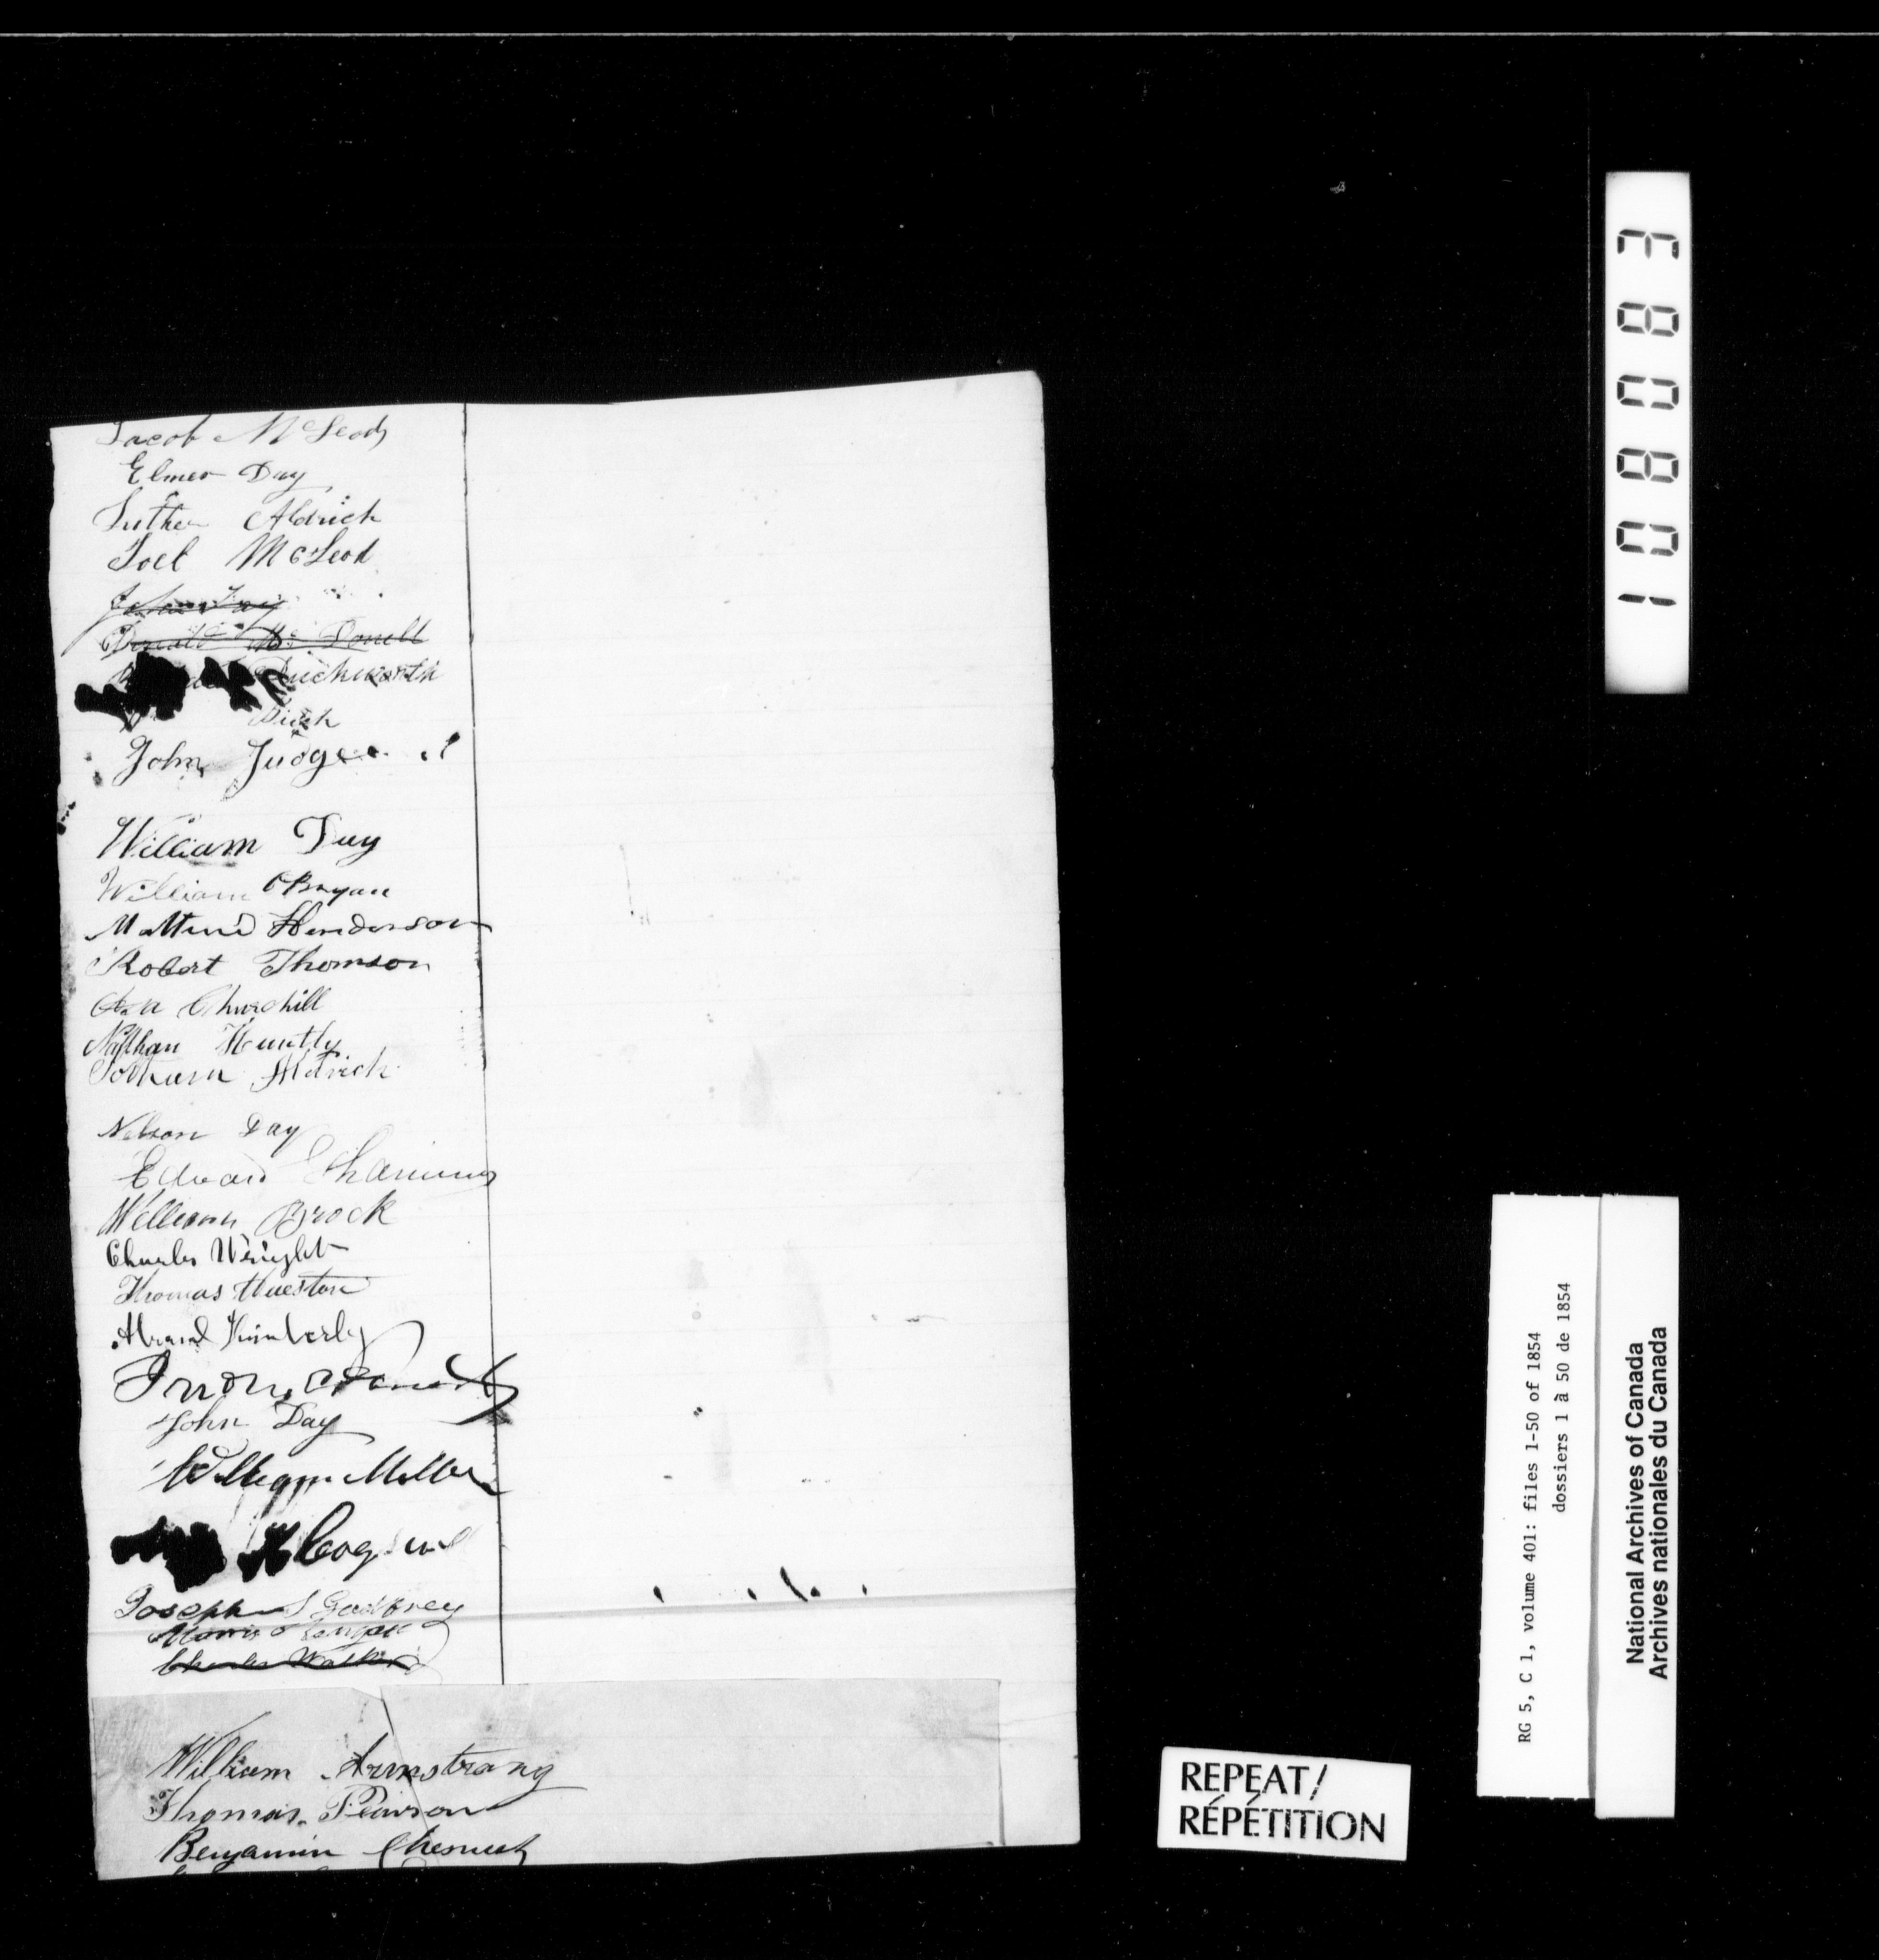 Jacob McLeod
Elmer Day
Luther Aldrich
Joel McLeod
John Day
Donald Mc Donell
Duckworth
John Judge
William Day
William OBryan
Henderson
Robert Thomson
Churchill
Nathan Huntly
Jotham Aldrich
Nelson Day
Edward
William Brock
Charles Wright
Thomas Hueston
Kimberly
John Day
William Miller
Joseph S Godfrey
Morris
Charles Walker
William Armstrong
Thomas Pearson
Benjamin Chesnut
108083
RG 5, C 1, volume 401: files 1-50 of 1854
dossiers 1 à 50 de 1854
National Archives of Canada
Archives nationales du Canada
REPEAT/
RÉPÉTITION